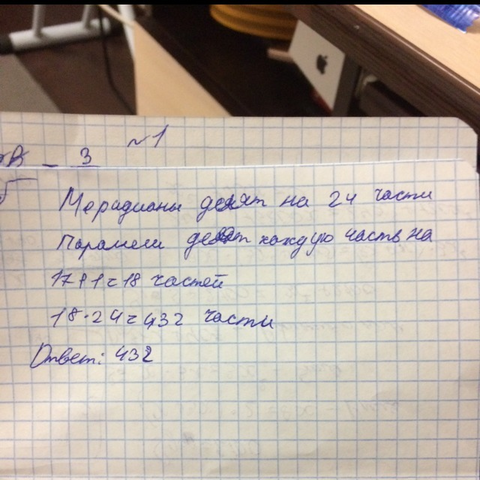 №1
В - 3
Меридианы делят на 24 части
Параллели делят каждую часть на
17+1=18 частей
18·24=432 части
Ответ: 432